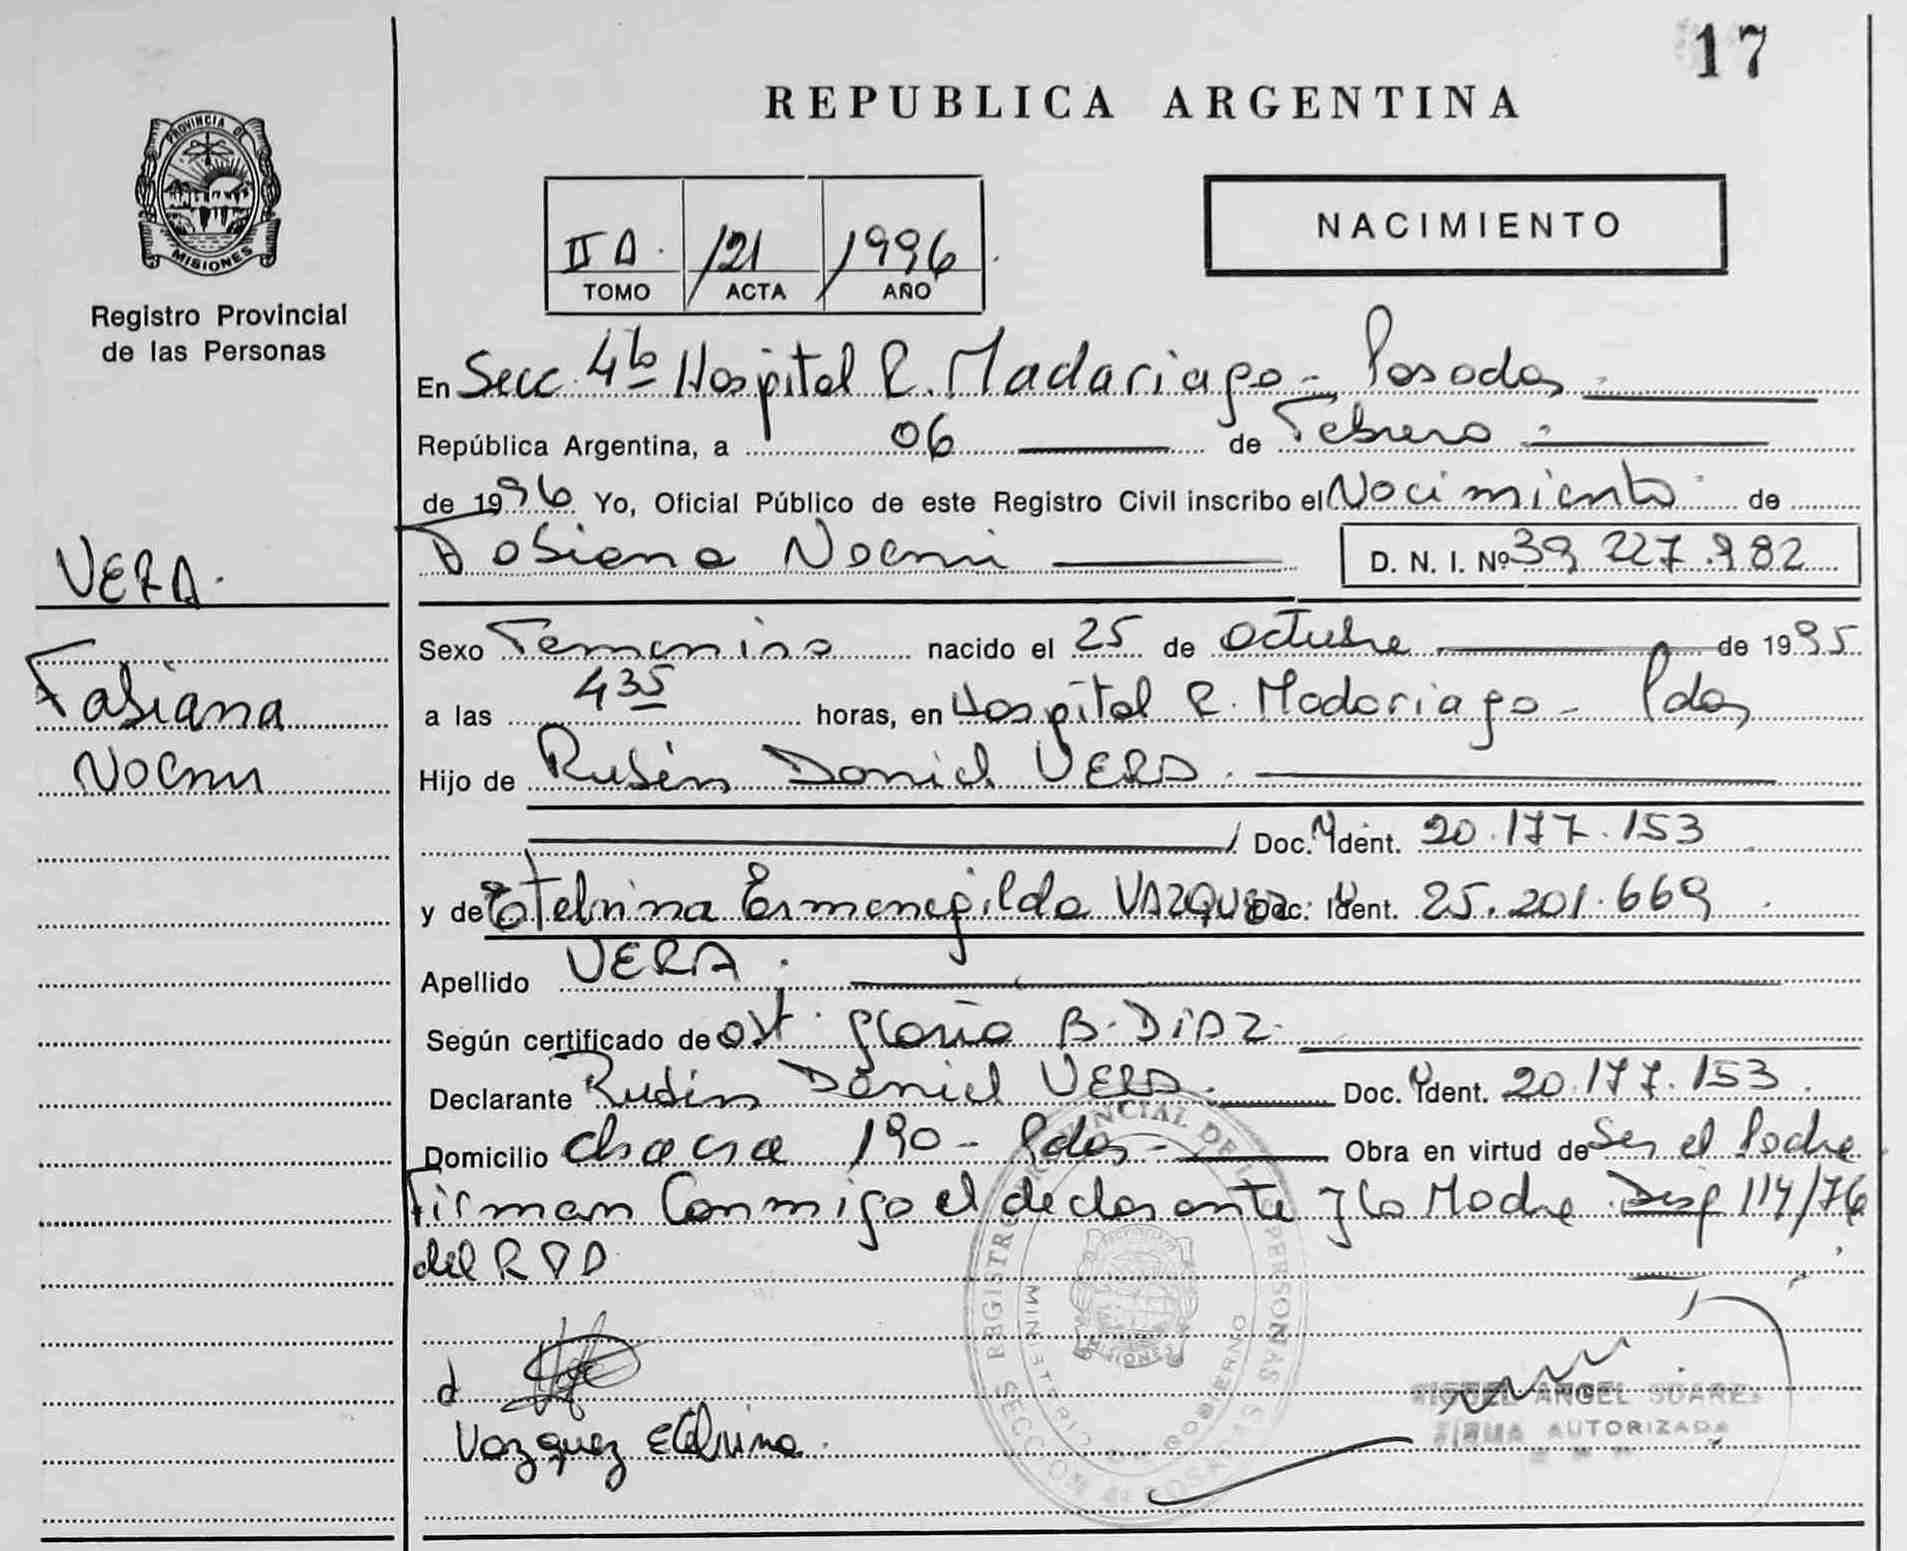 17
REPUBLICA ARGENTINA
PROVINCIA DE
MISIONES
Registro Provincial
de las Personas
NACIMIENTO
II A. 121 1996
TOMO ACTA AÑO
En Secc. 4ta Hospital R. Madariaga - Posadas
República Argentina, a 06 de Febrero
de 1996 Yo, Oficial Público de este Registro Civil inscribo el Nacimiento de
Fabiana Noemi D. N. I. Nº 39.227.982
VERA.
Fabiana
Noemi
Sexo Femenino nacido el 25 de octubre de 1995
a las 4 35 horas, en Hospital R. Madariaga - Pdas
Hijo de Rubén Daniel VERA.
Doc. Ident. 20.177.153
y de Etelvina Ermenegilda VAZQUEZ Doc. Ident. 25.201.669
Apellido VERA.
Según certificado de Ost. Gloria B. DIAZ.
Declarante Rubén Daniel VERA. Doc. Ident. 20.177.153.
Domicilio chacra 190 - Pdas - Obra en virtud de Ser el Padre
Firman Conmigo el declarante y la Madre. Disp 114/76
del RPP
REGISTRO PROVINCIAL DE LAS PERSONAS
MINISTERIO DE GOBIERNO
SECCION 4ª POSADAS
Vazquez Etelvina.
MIGUEL ANGEL SUAREZ
FIRMA AUTORIZADA